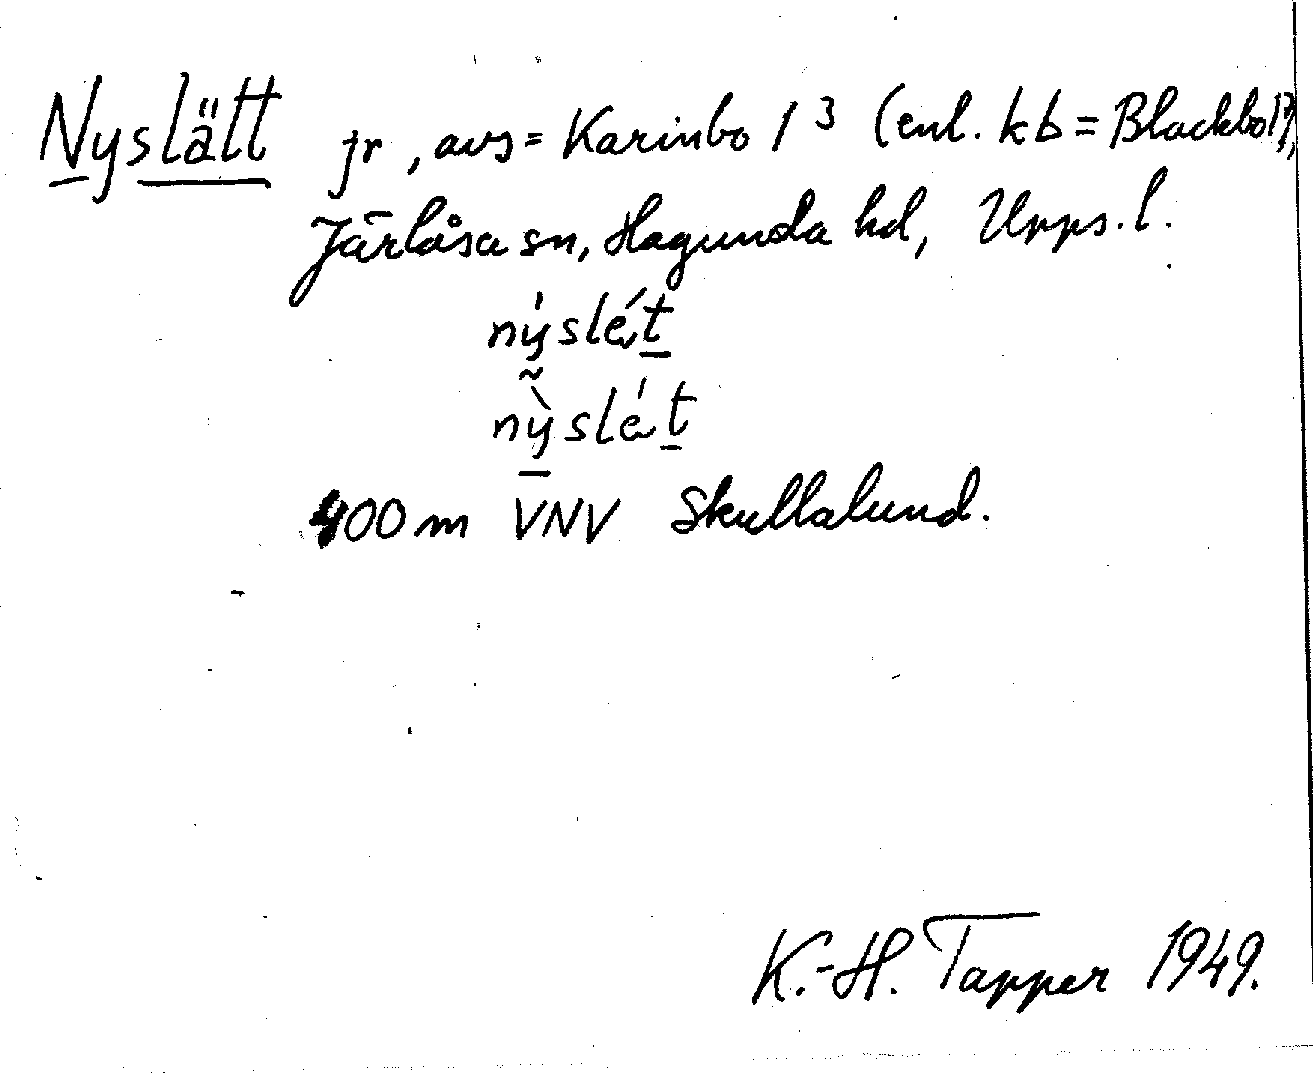 Nyslätt jr, avs = Karinbo 1³ (enl. kb = Blackbo 1³),
Järlåsa sn, Hagunda hd, Upps. l.
nýslét
nỳslét
400 m VNV Skullalund.
K.-H. Tapper 1949.